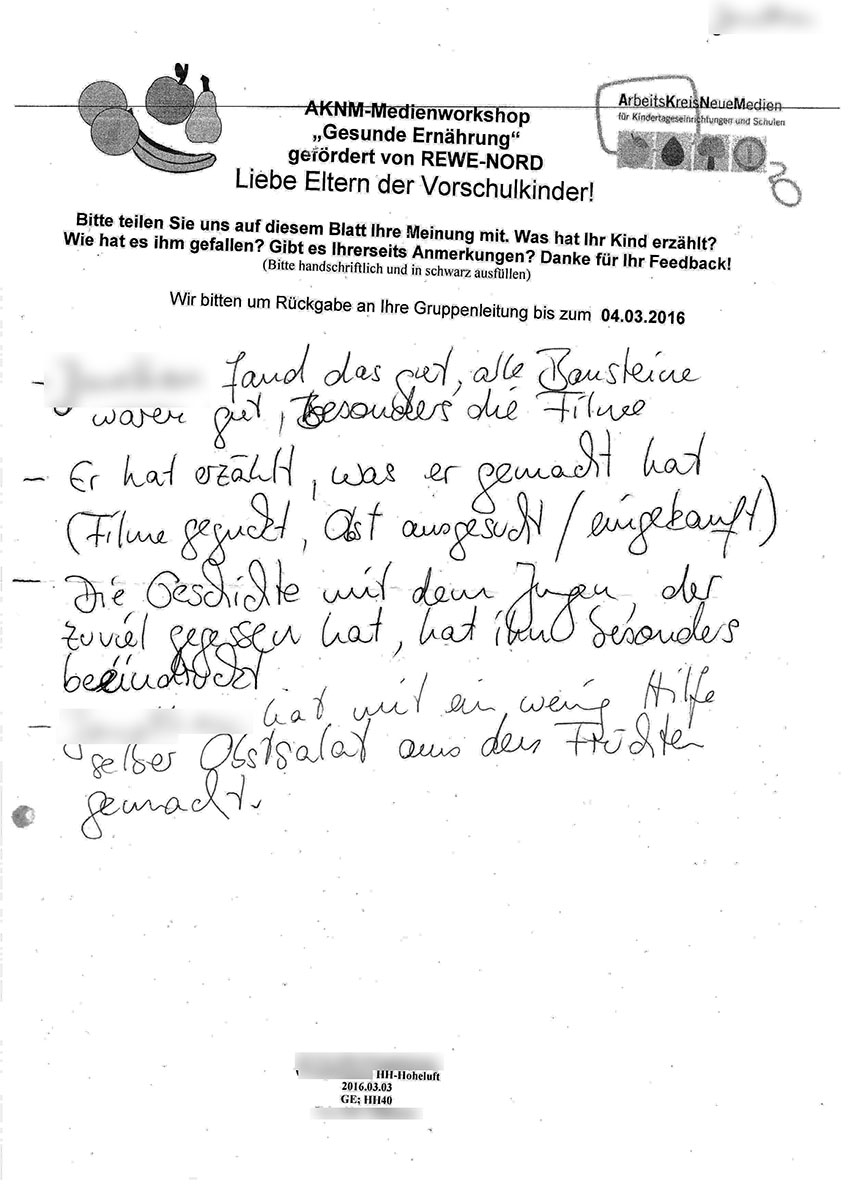 AKNM-Medienworkshop
„Gesunde Ernährung“
gefördert von REWE-NORD
ArbeitsKreisNeueMedien
für Kindertageseinrichtungen und Schulen
Liebe Eltern der Vorschulkinder!
Bitte teilen Sie uns auf diesem Blatt Ihre Meinung mit. Was hat Ihr Kind erzählt?
Wie hat es ihm gefallen? Gibt es Ihrerseits Anmerkungen? Danke für Ihr Feedback!
(Bitte handschriftlich und in schwarz ausfüllen)
Wir bitten um Rückgabe an Ihre Gruppenleitung bis zum 04.03.2016
– fand das gut, alle Bausteine
waren gut, Besonders die Filme
– Er hat erzählt, was er gemacht hat
(Filme geguckt, Obst ausgesucht / eingekauft)
– Die Geschichte mit dem Jungen, der
zuviel gegessen hat, hat ihn besonders
beeindruckt
– hat mit ein wenig Hilfe
selber Obstsalat aus den Früchten
gemacht.
HH-Hoheluft
2016.03.03
GE; HH40